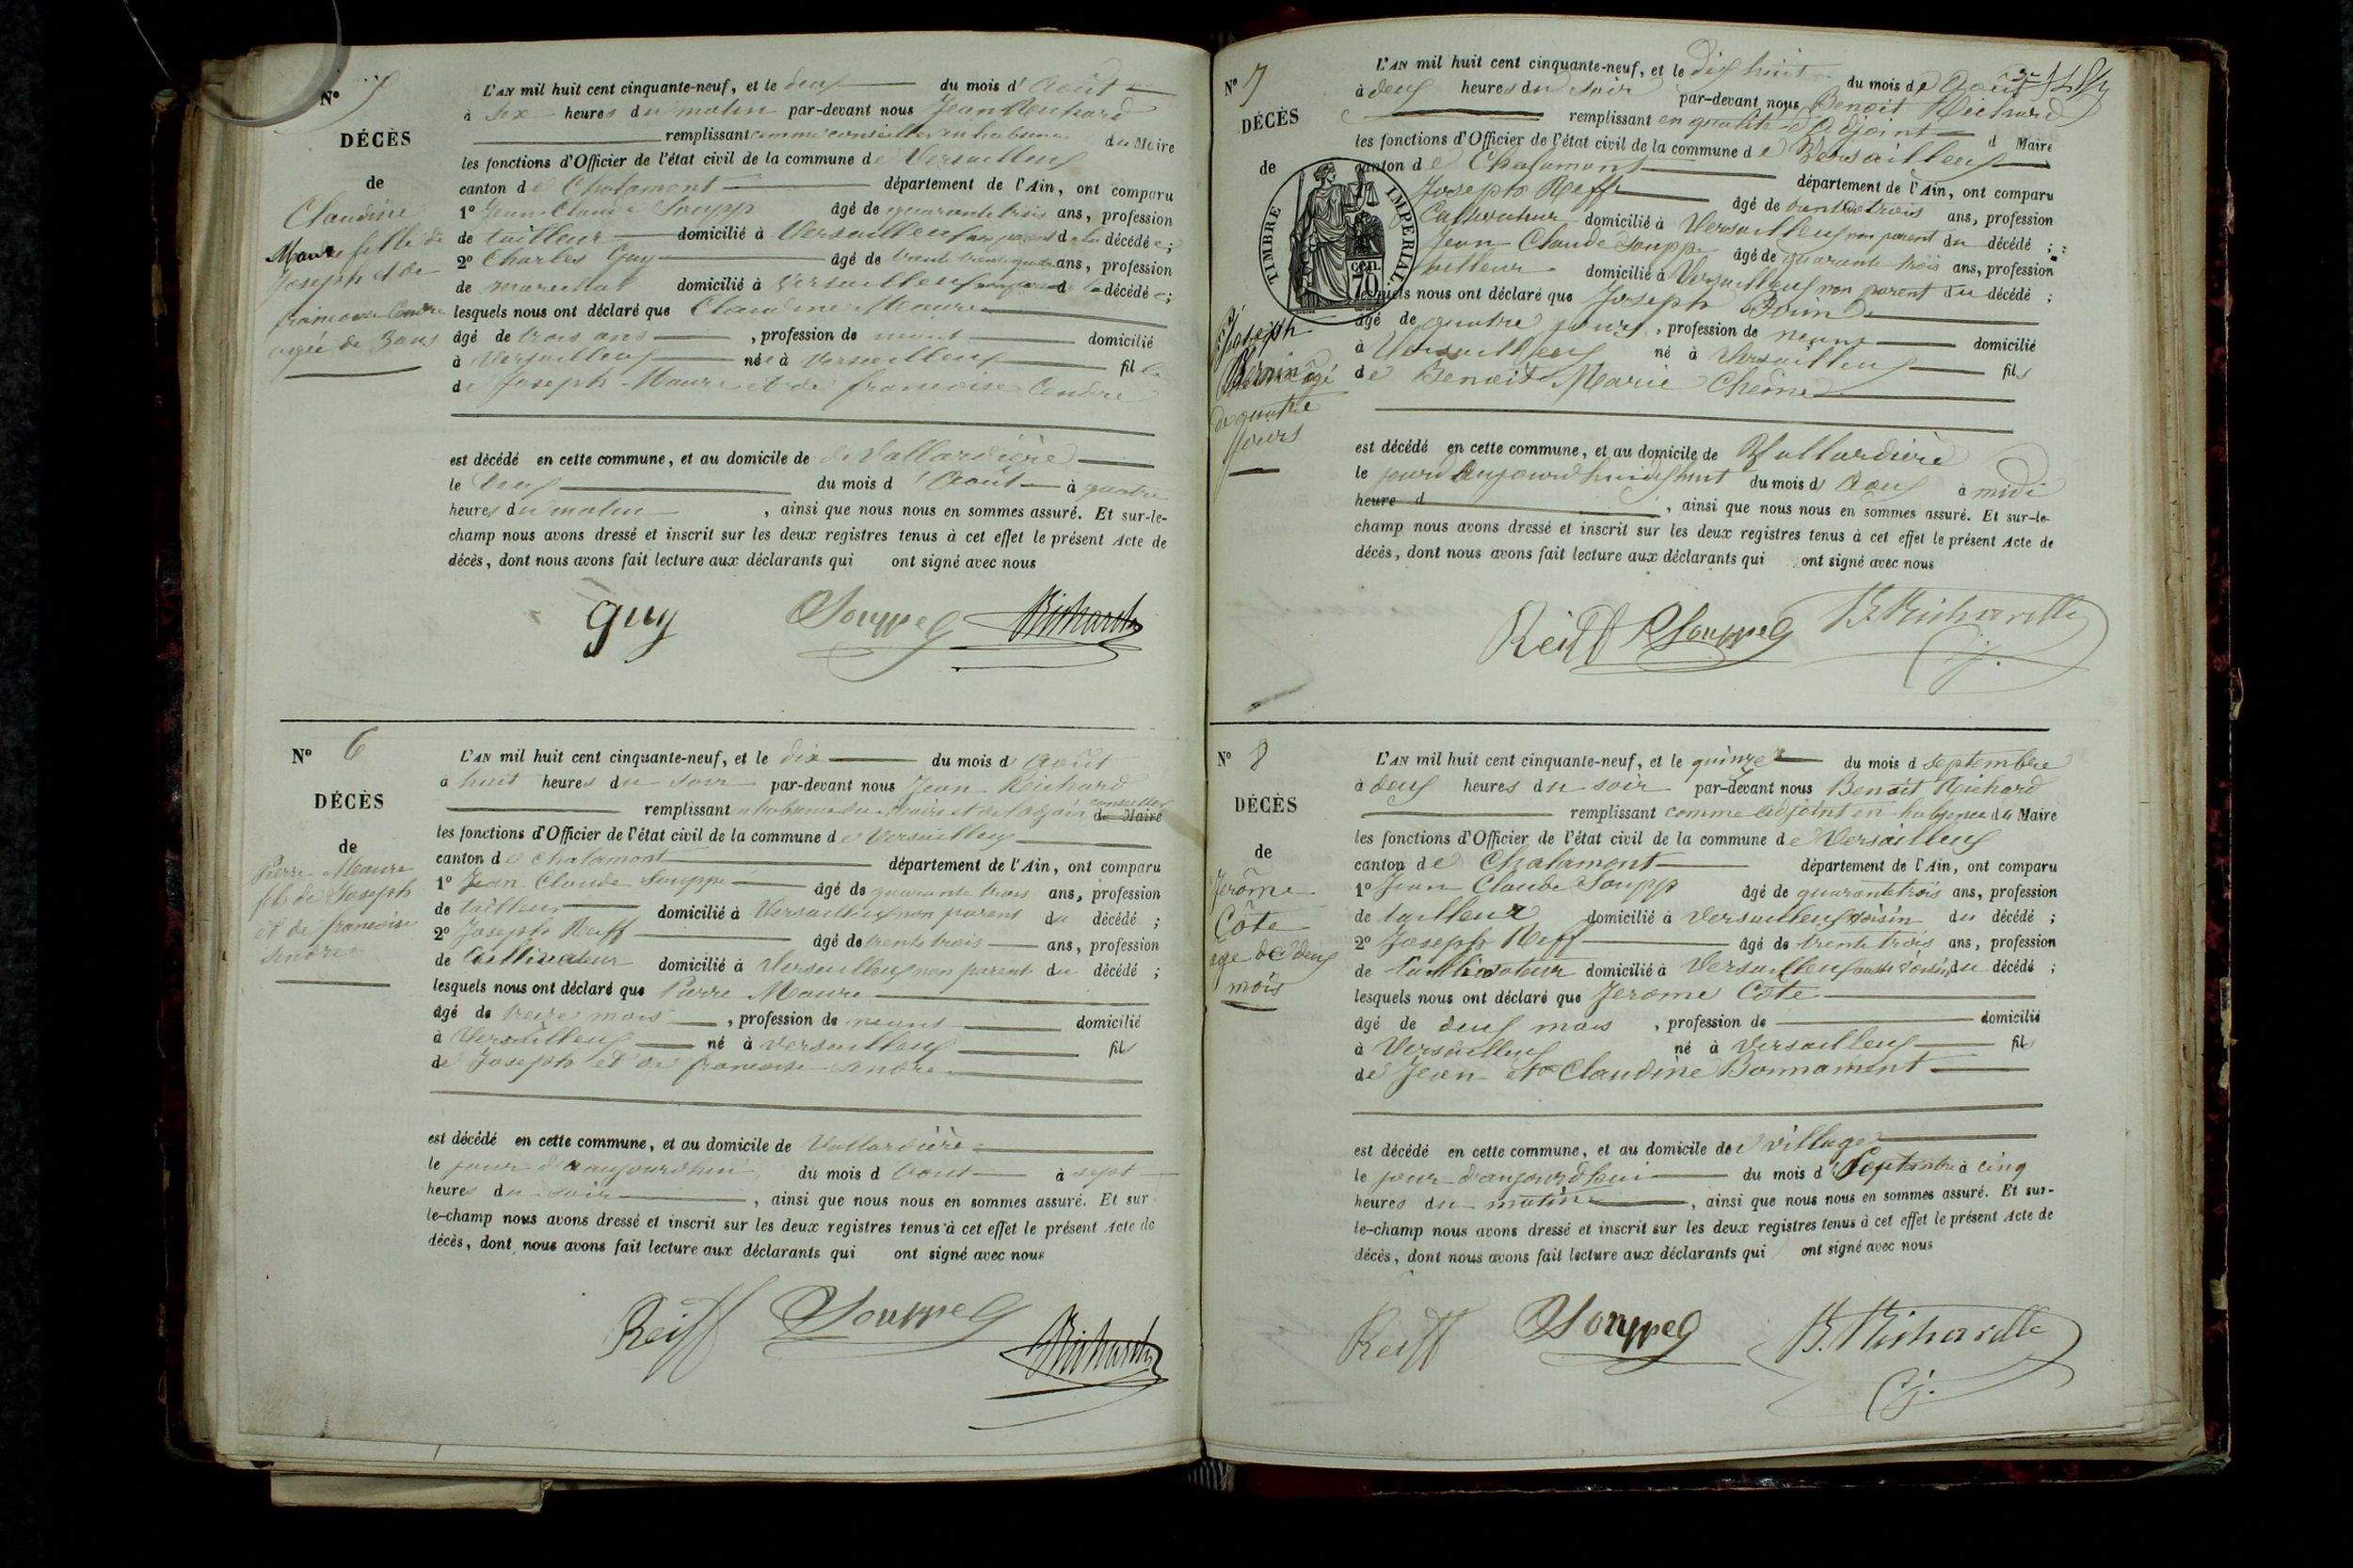 N° 5
DÉCÈS
de
Claudine
Maure fille de
Joseph et de
francoise Cendre
agée de 3 ans
L'AN mil huit cent cinquante-neuf, et le deux du mois d'Août
à six heures du matin par-devant nous Jean Richard
remplissant comme conseiller en du Maire
les fonctions d'Officier de l'état civil de la commune de Versailleux
canton de Chalamont département de l'Ain, ont comparu
1° Jean Claude Soupp âgé de quarante trois ans, profession
de tailleur domicilié à Versailleux non parent de la décédée;
2° Charles Guy âgé de ans, profession
de marechal domicilié à Versailleux décédée;
lesquels nous ont déclaré que Claudine Maure
âgé de trois ans, profession de domicilié
à Versailleux née à Versailleux fille
de Joseph Maure et de francoise Cendre
est décédé en cette commune, et au domicile de Vallardière
le deux du mois d'Août à quatre
heures du matin, ainsi que nous nous en sommes assuré. Et sur-le-
champ nous avons dressé et inscrit sur les deux registres tenus à cet effet le présent Acte de
décès, dont nous avons fait lecture aux déclarants qui ont signé avec nous
Guy Souppe Richard
N° 6
DÉCÈS
de
Pierre Maure
fils de Joseph
et de francoise
Sendre
L'AN mil huit cent cinquante-neuf, et le dix du mois d'Août
à huit heures du soir par-devant nous Jean Richard
conseiller
remplissant du Maire et de l'adjoint de Maire
les fonctions d'Officier de l'état civil de la commune de Versailleux
canton de Chalamont département de l'Ain, ont comparu
1° Jean Claude Souppe âgé de quarante trois ans, profession
de tailleur domicilié à Versailleux non parent du décédé;
2° Joseph Reiff âgé de trente trois ans, profession
de Cultivateur domicilié à Versailleux non parent du décédé;
lesquels nous ont déclaré que Pierre Maure
âgé de treize mois, profession de neant domicilié
à Versailleux né à Versailleux fils
de Joseph et de francoise Sendre
est décédé en cette commune, et au domicile de Vallardière
le jour d'aujourdhui du mois d'aout à sept
heures du soir, ainsi que nous nous en sommes assuré. Et sur
le-champ nous avons dressé et inscrit sur les deux registres tenus à cet effet le présent Acte de
décès, dont nous avons fait lecture aux déclarants qui ont signé avec nous
Reiff Souppe Richard
N° 7
DÉCÈS
de
Joseph
âgé
de quatre
jours
TIMBRE IMPERIAL
70 cen.
L'AN mil huit cent cinquante-neuf, et le dix huit du mois de Août
à deux heures du soir par-devant nous Benoit Richard
remplissant en qualité d'Adjoint d Maire
les fonctions d'Officier de l'état civil de la commune de Versailleux
canton de Chalamont département de l'Ain, ont comparu
Joseph Reiff âgé de trente trois ans, profession
Cultivateur domicilié à Versailleux non parent du décédé;
Jean Claude Souppe âgé de quarante trois ans, profession
tailleur domicilié à Versailleux non parent du décédé;
lesquels nous ont déclaré que Joseph
âgé de quatre jours, profession de neant domicilié
à Versailleux né à Versailleux fils
de Benoit Marie Chêne
est décédé en cette commune, et au domicile de Vallardière
le jour d'aujourd'hui dix huit du mois d'Aout à midi
heure d, ainsi que nous nous en sommes assuré. Et sur-le-
champ nous avons dressé et inscrit sur les deux registres tenus à cet effet le présent Acte de
décès, dont nous avons fait lecture aux déclarants qui ont signé avec nous
Reiff Souppe B. Richard
N° 8
DÉCÈS
de
Jerôme
Côte
age de deux
mois
L'AN mil huit cent cinquante-neuf, et le quinze du mois d septembre
à deux heures du soir par-devant nous Benoit Richard
remplissant comme adjoint en du Maire
les fonctions d'Officier de l'état civil de la commune de Versailleux
canton de Chalamont département de l'Ain, ont comparu
1° Jean Claude Soupp âgé de quarante trois ans, profession
de tailleur domicilié à Versailleux voisin du décédé;
2° Joseph Reff âgé de trente trois ans, profession
de Cultivateur domicilié à Versailleux aussi voisin du décédé;
lesquels nous ont déclaré que Jerome Côte
âgé de deux mois, profession de domicilié
à Versailleux né à Versailleux fils
de Jean et Claudine Bonnament
est décédé en cette commune, et au domicile de village
le jour d'aujourdhui du mois d Septembre à cinq
heures du matin, ainsi que nous nous en sommes assuré. Et sur-
le-champ nous avons dressé et inscrit sur les deux registres tenus à cet effet le présent Acte de
décès, dont nous avons fait lecture aux déclarants qui ont signé avec nous
Reiff Souppe B. Richard